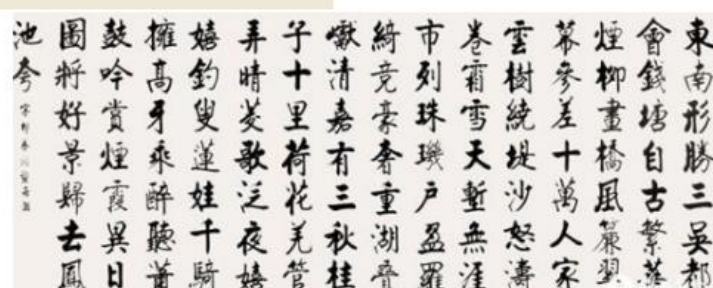 東南形勝三吳都
會錢塘自古繁華
煙柳畫橋風簾翠
幕參差十萬人家
雲樹繞堤沙怒濤
卷霜雪天塹無涯
市列珠璣戶盈羅
綺竞豪奢重湖疊
巘清嘉有三秋桂
子十里荷花羌管
弄晴菱歌泛夜嬉
嬉釣叟蓮娃千騎
擁高牙乘醉聽簫
鼓吟賞煙霞異日
圖將好景歸去鳳
池夸